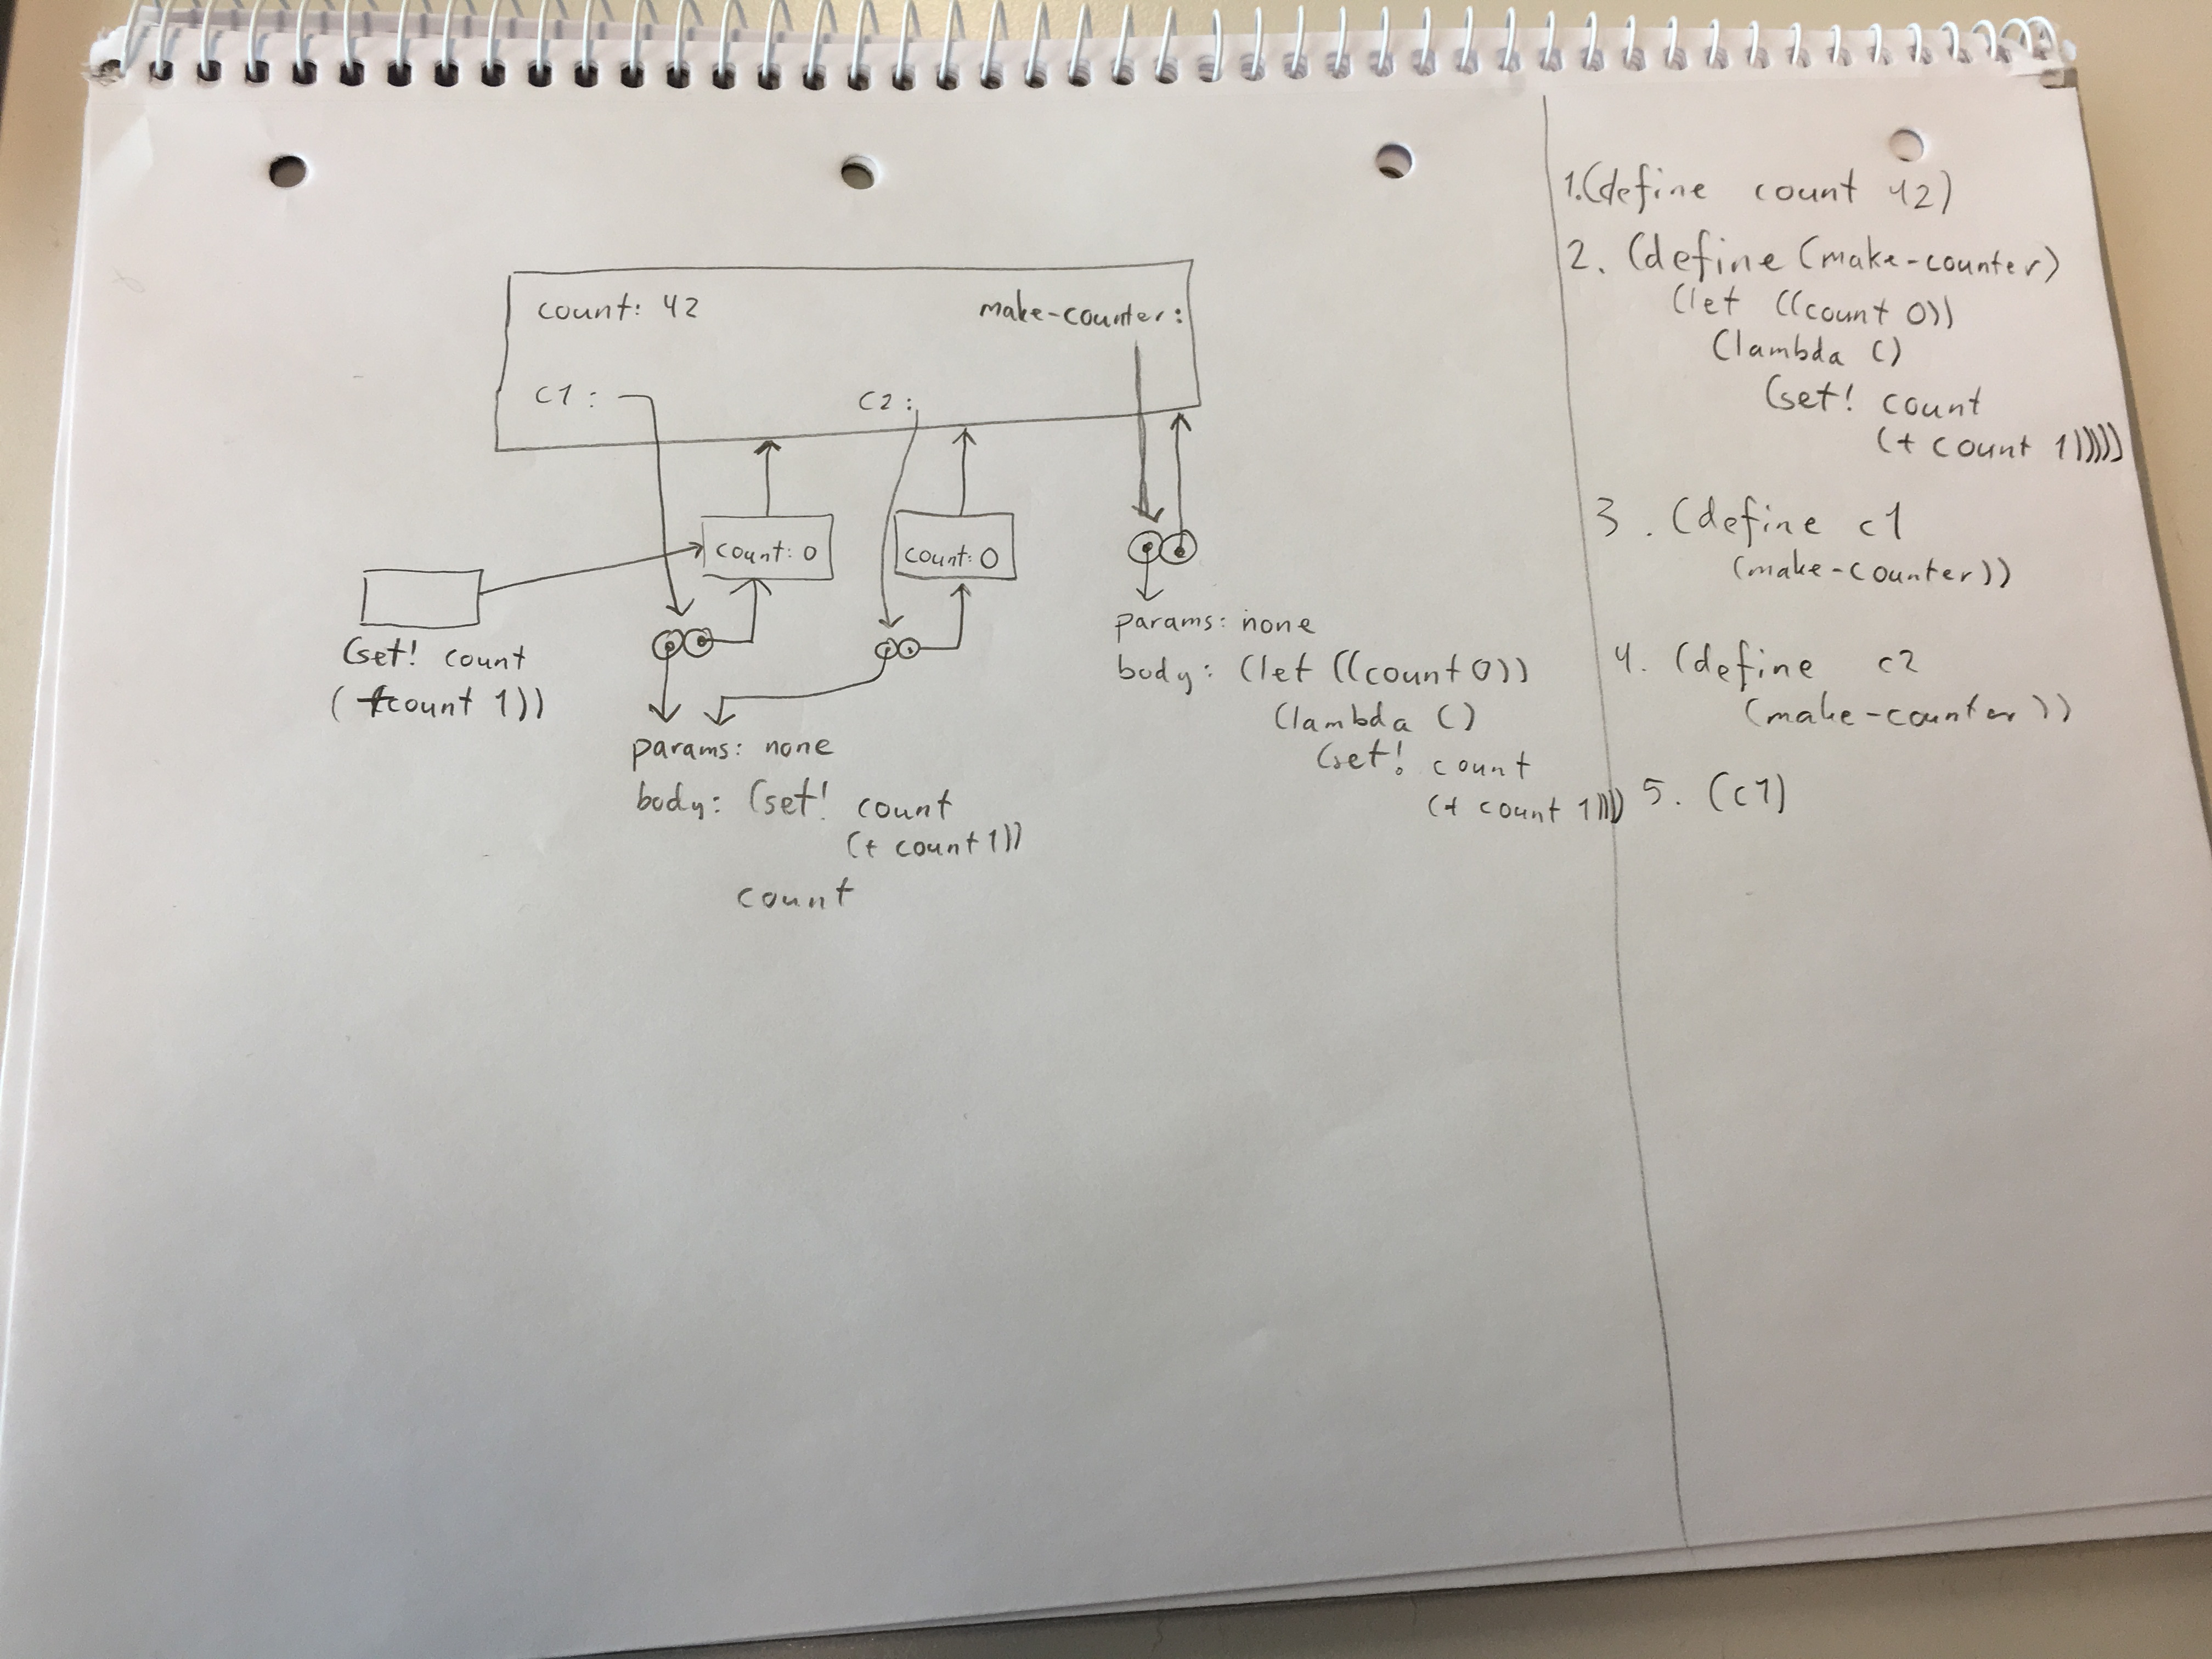 count: 42 make-counter:
c1: c2:
count: 0 count: 0
(set! count
(+ count 1))
params: none
body: (set! count
(+ count 1))
count
params: none
body: (let ((count 0))
(lambda ()
(set! count
(+ count 1))))
1. (define count 42)
2. (define (make-counter)
(let ((count 0))
(lambda ()
(set! count
(+ count 1)))))
3. (define c1
(make-counter))
4. (define c2
(make-counter))
5. (c1)